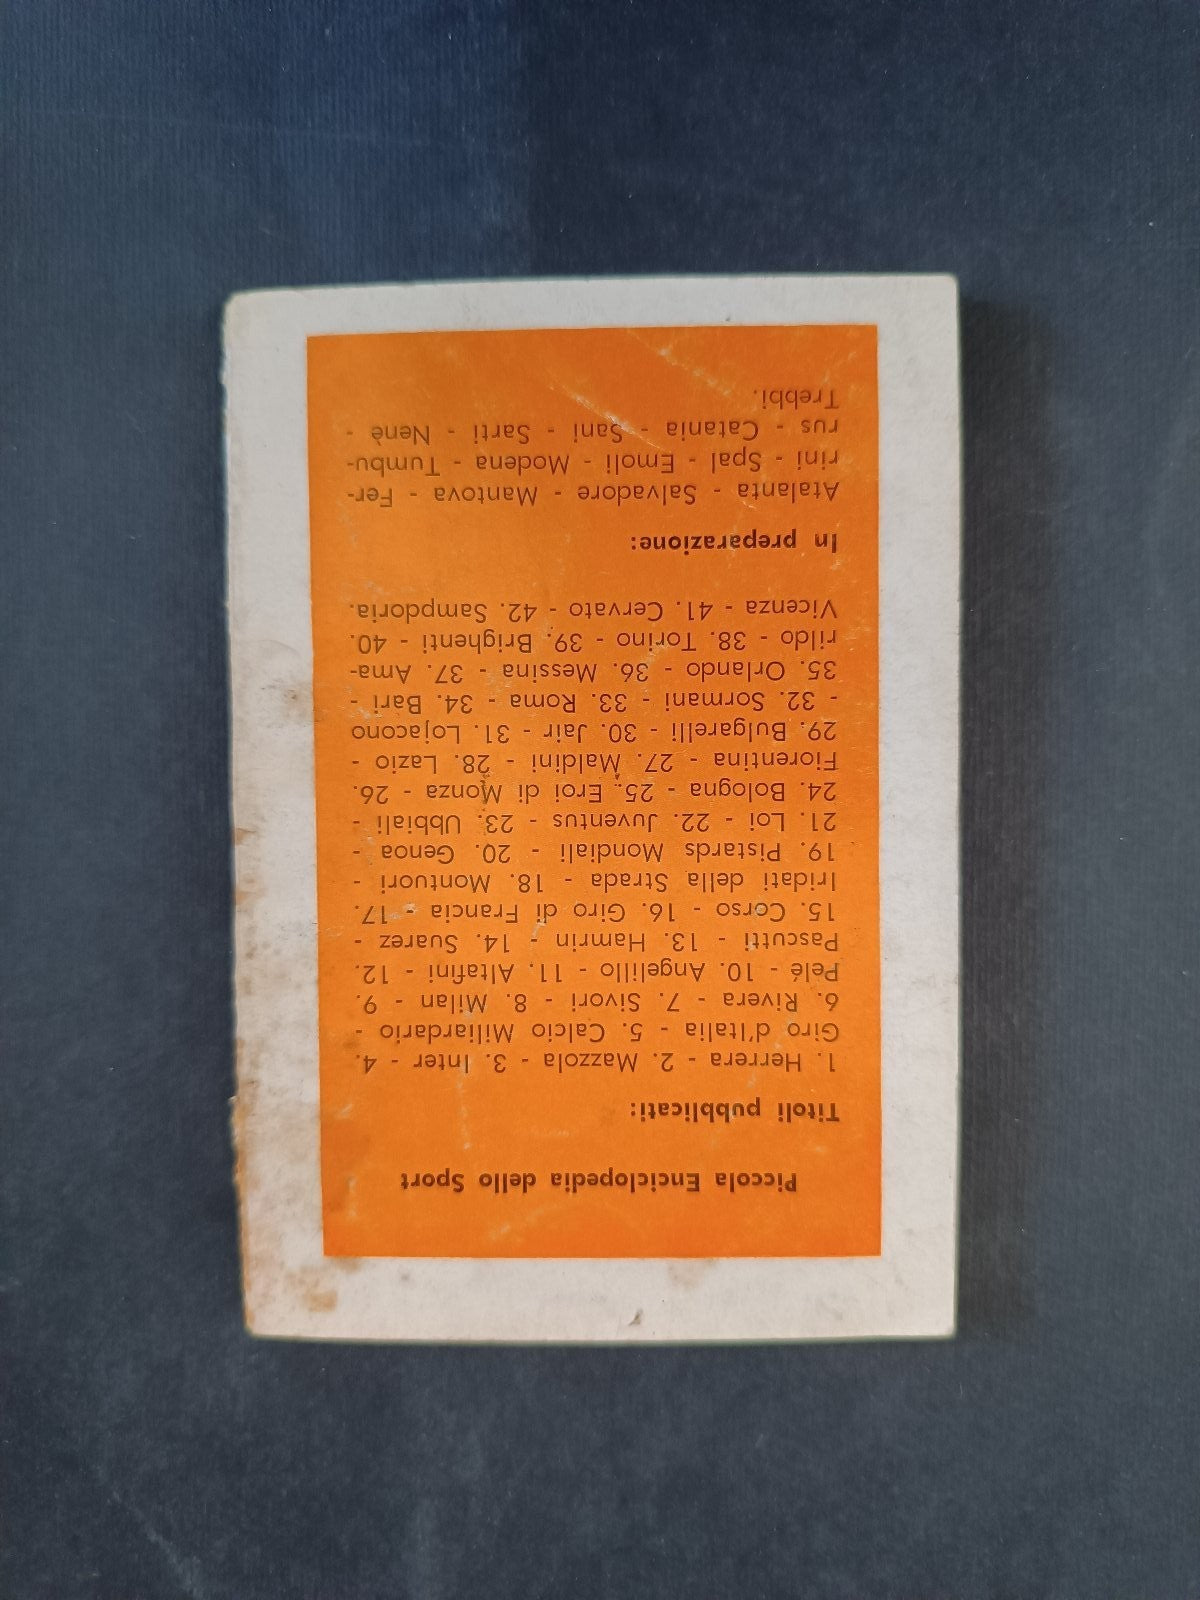 Piccola Enciclopedia dello Sport
Titoli pubblicati:
1. Herrera - 2. Mazzola - 3. Inter - 4.
Giro d'Italia - 5. Calcio Miliardario -
6. Rivera - 7. Sivori - 8. Milan - 9.
Pelé - 10. Angelillo - 11. Altafini - 12.
Pascutti - 13. Hamrin - 14. Suarez -
15. Corso - 16. Giro di Francia - 17.
Iridati della Strada - 18. Montuori -
19. Pistards Mondiali - 20. Genoa -
21. Loi - 22. Juventus - 23. Ubbiali -
24. Bologna - 25. Eroi di Monza - 26.
Fiorentina - 27. Maldini - 28. Lazio -
29. Bulgarelli - 30. Jair - 31. Lojacono
- 32. Sormani - 33. Roma - 34. Bari -
35. Orlando - 36. Messina - 37. Ama-
rildo - 38. Torino - 39. Brighenti - 40.
Vicenza - 41. Cervato - 42. Sampdoria.
In preparazione:
Atalanta - Salvadore - Mantova - Fer-
rini - Spal - Emoli - Modena - Tumbu-
rus - Catania - Sani - Sarti - Nenè -
Trebbi.